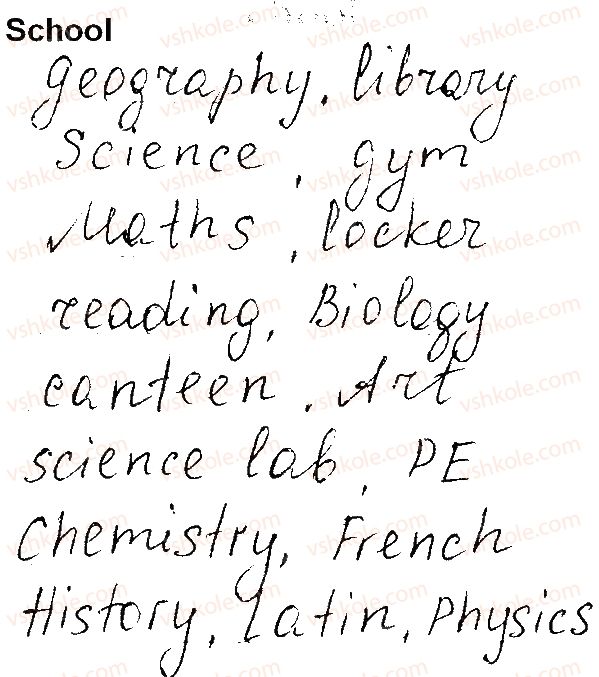 School
geography, library
Science, gym
Maths, locker
reading, Biology
canteen, Art
science lab, PE
Chemistry, French
History, Latin, Physics